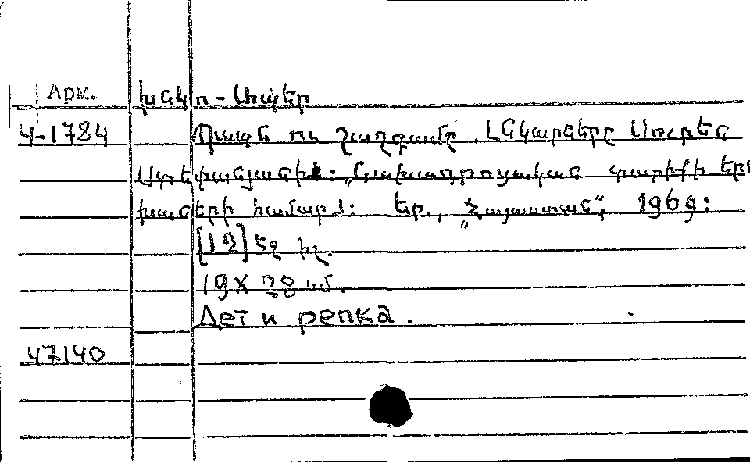 Арк. Խնկո-Ապեր
Ч-1784 Պապն ու շաղգամը. Նկարները Սուրեն
Ստեփանյանի: Նախադպրոցական տարիքի երե
խաների համար: Եր., „Հայաստան“, 1969:
[12] էջ իլ.
19x28 սմ.
Дет и репка.
47140